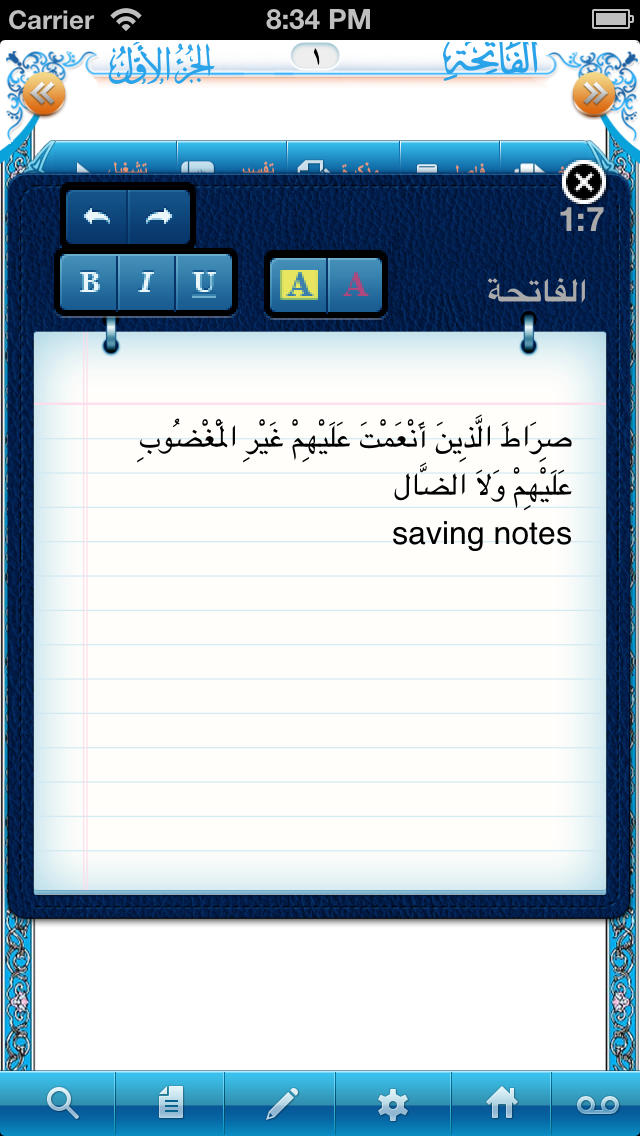 Carrier 8:34 PM
الفَاتِحَةِ ١ الجُزْءُ الأَوَّلُ
فاصل مذكرة تفسير تشغيل
1:7
B I U A A
الفاتحة
صِرَاطَ الَّذِينَ أَنْعَمْتَ عَلَيْهِمْ غَيْرِ الْمَغْضُوبِ
عَلَيْهِمْ وَلاَ الضَّال
saving notes